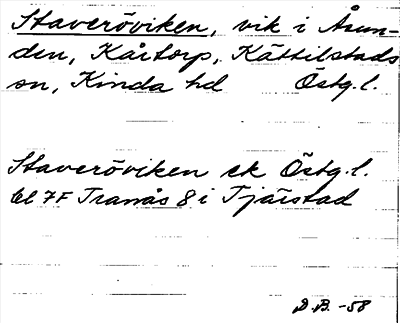 Staveröviken, vik i Åsun-
den, Kårtorp, Kättilstads
sn, Kinda hd Östg.l.
Staveröviken ek Östg.l.
bl 7F Tranås 8 i Tjärstad
D.B. -58